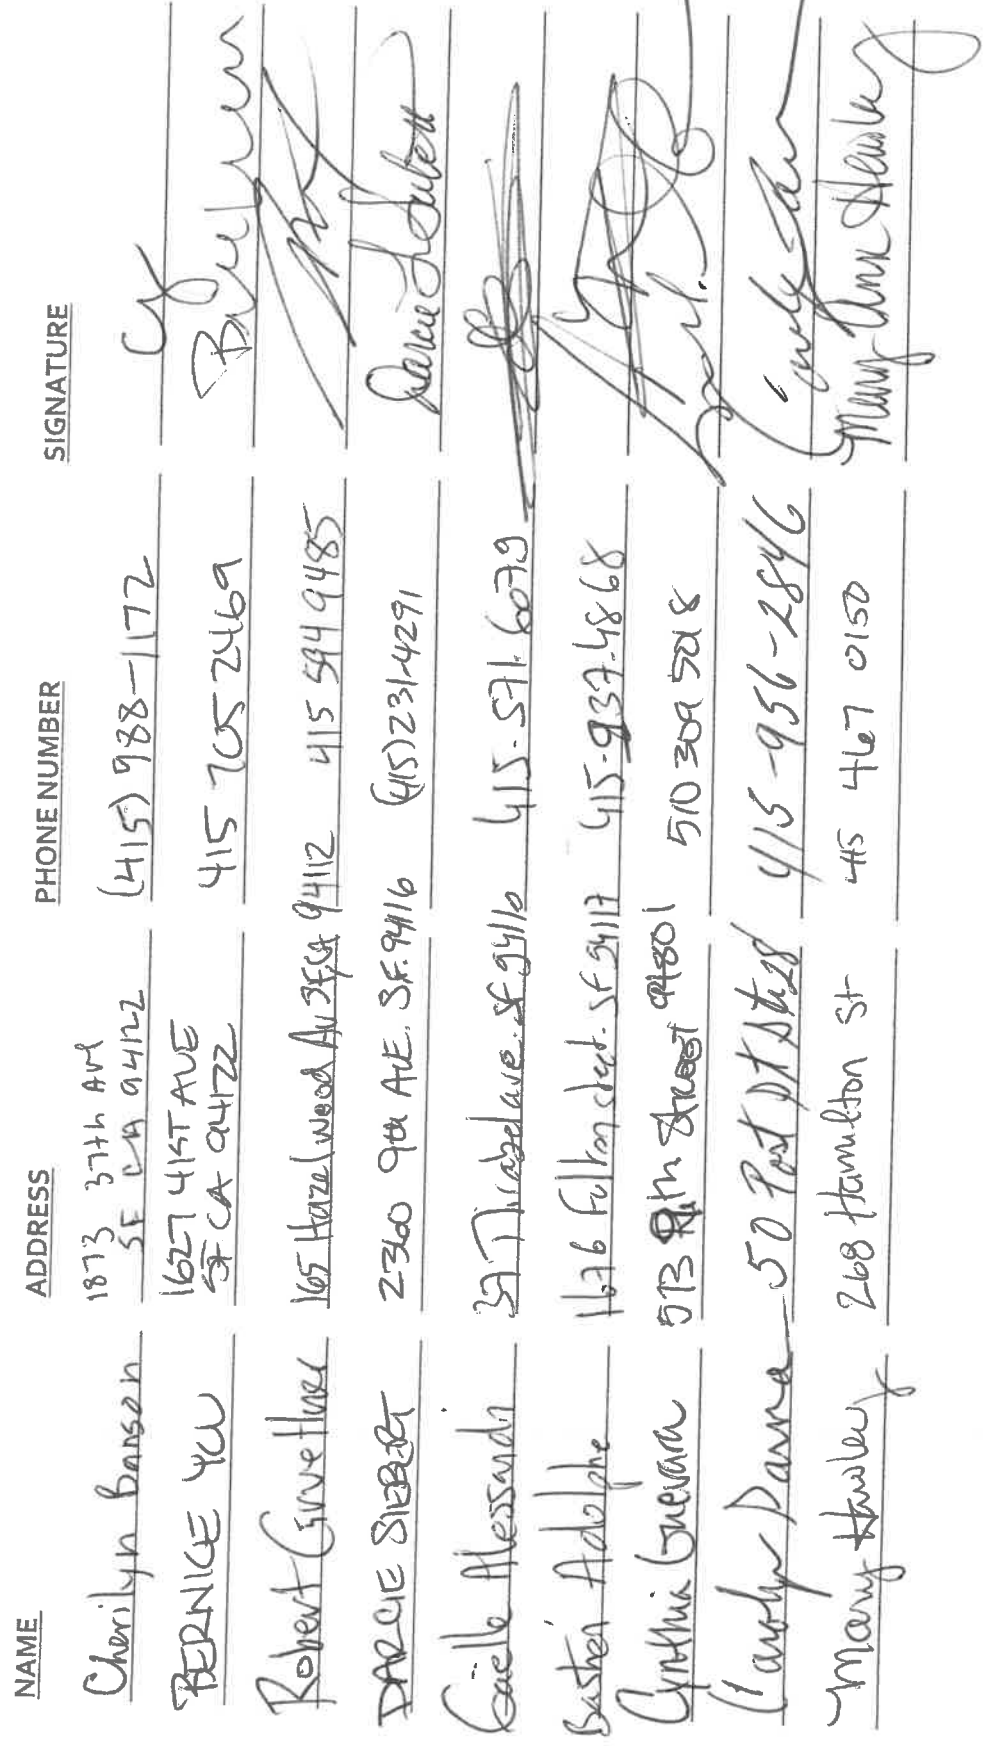 NAME ADDRESS PHONE NUMBER SIGNATURE
Cherilyn Banson 1873 37th Ave (415) 988-1172
SF CA 94122
BERNICE YCU 1627 41ST AVE 415 705 2469
SF CA 94122
Robert Gruettner 165 Hazelwood Av SF, CA 94112 415 594 9485
DARCIE SIEBERT 2360 9th AVE. S.F. 94116 (415) 231-4291 Darcie Siebert
Gaëlle Alessandri 37 ave. SF 94110 415-571-6079
Bastien Adolphe 1676 Fulton street. SF 94117 415-937-4868
Cynthia Guevara 573 8th Street 94801 510 309 5018
Carolyn 50 Post St 415-956-2846 Carolyn
Mary Hawley 268 Hamilton St 415 467 0150 Mary Ann Hawley